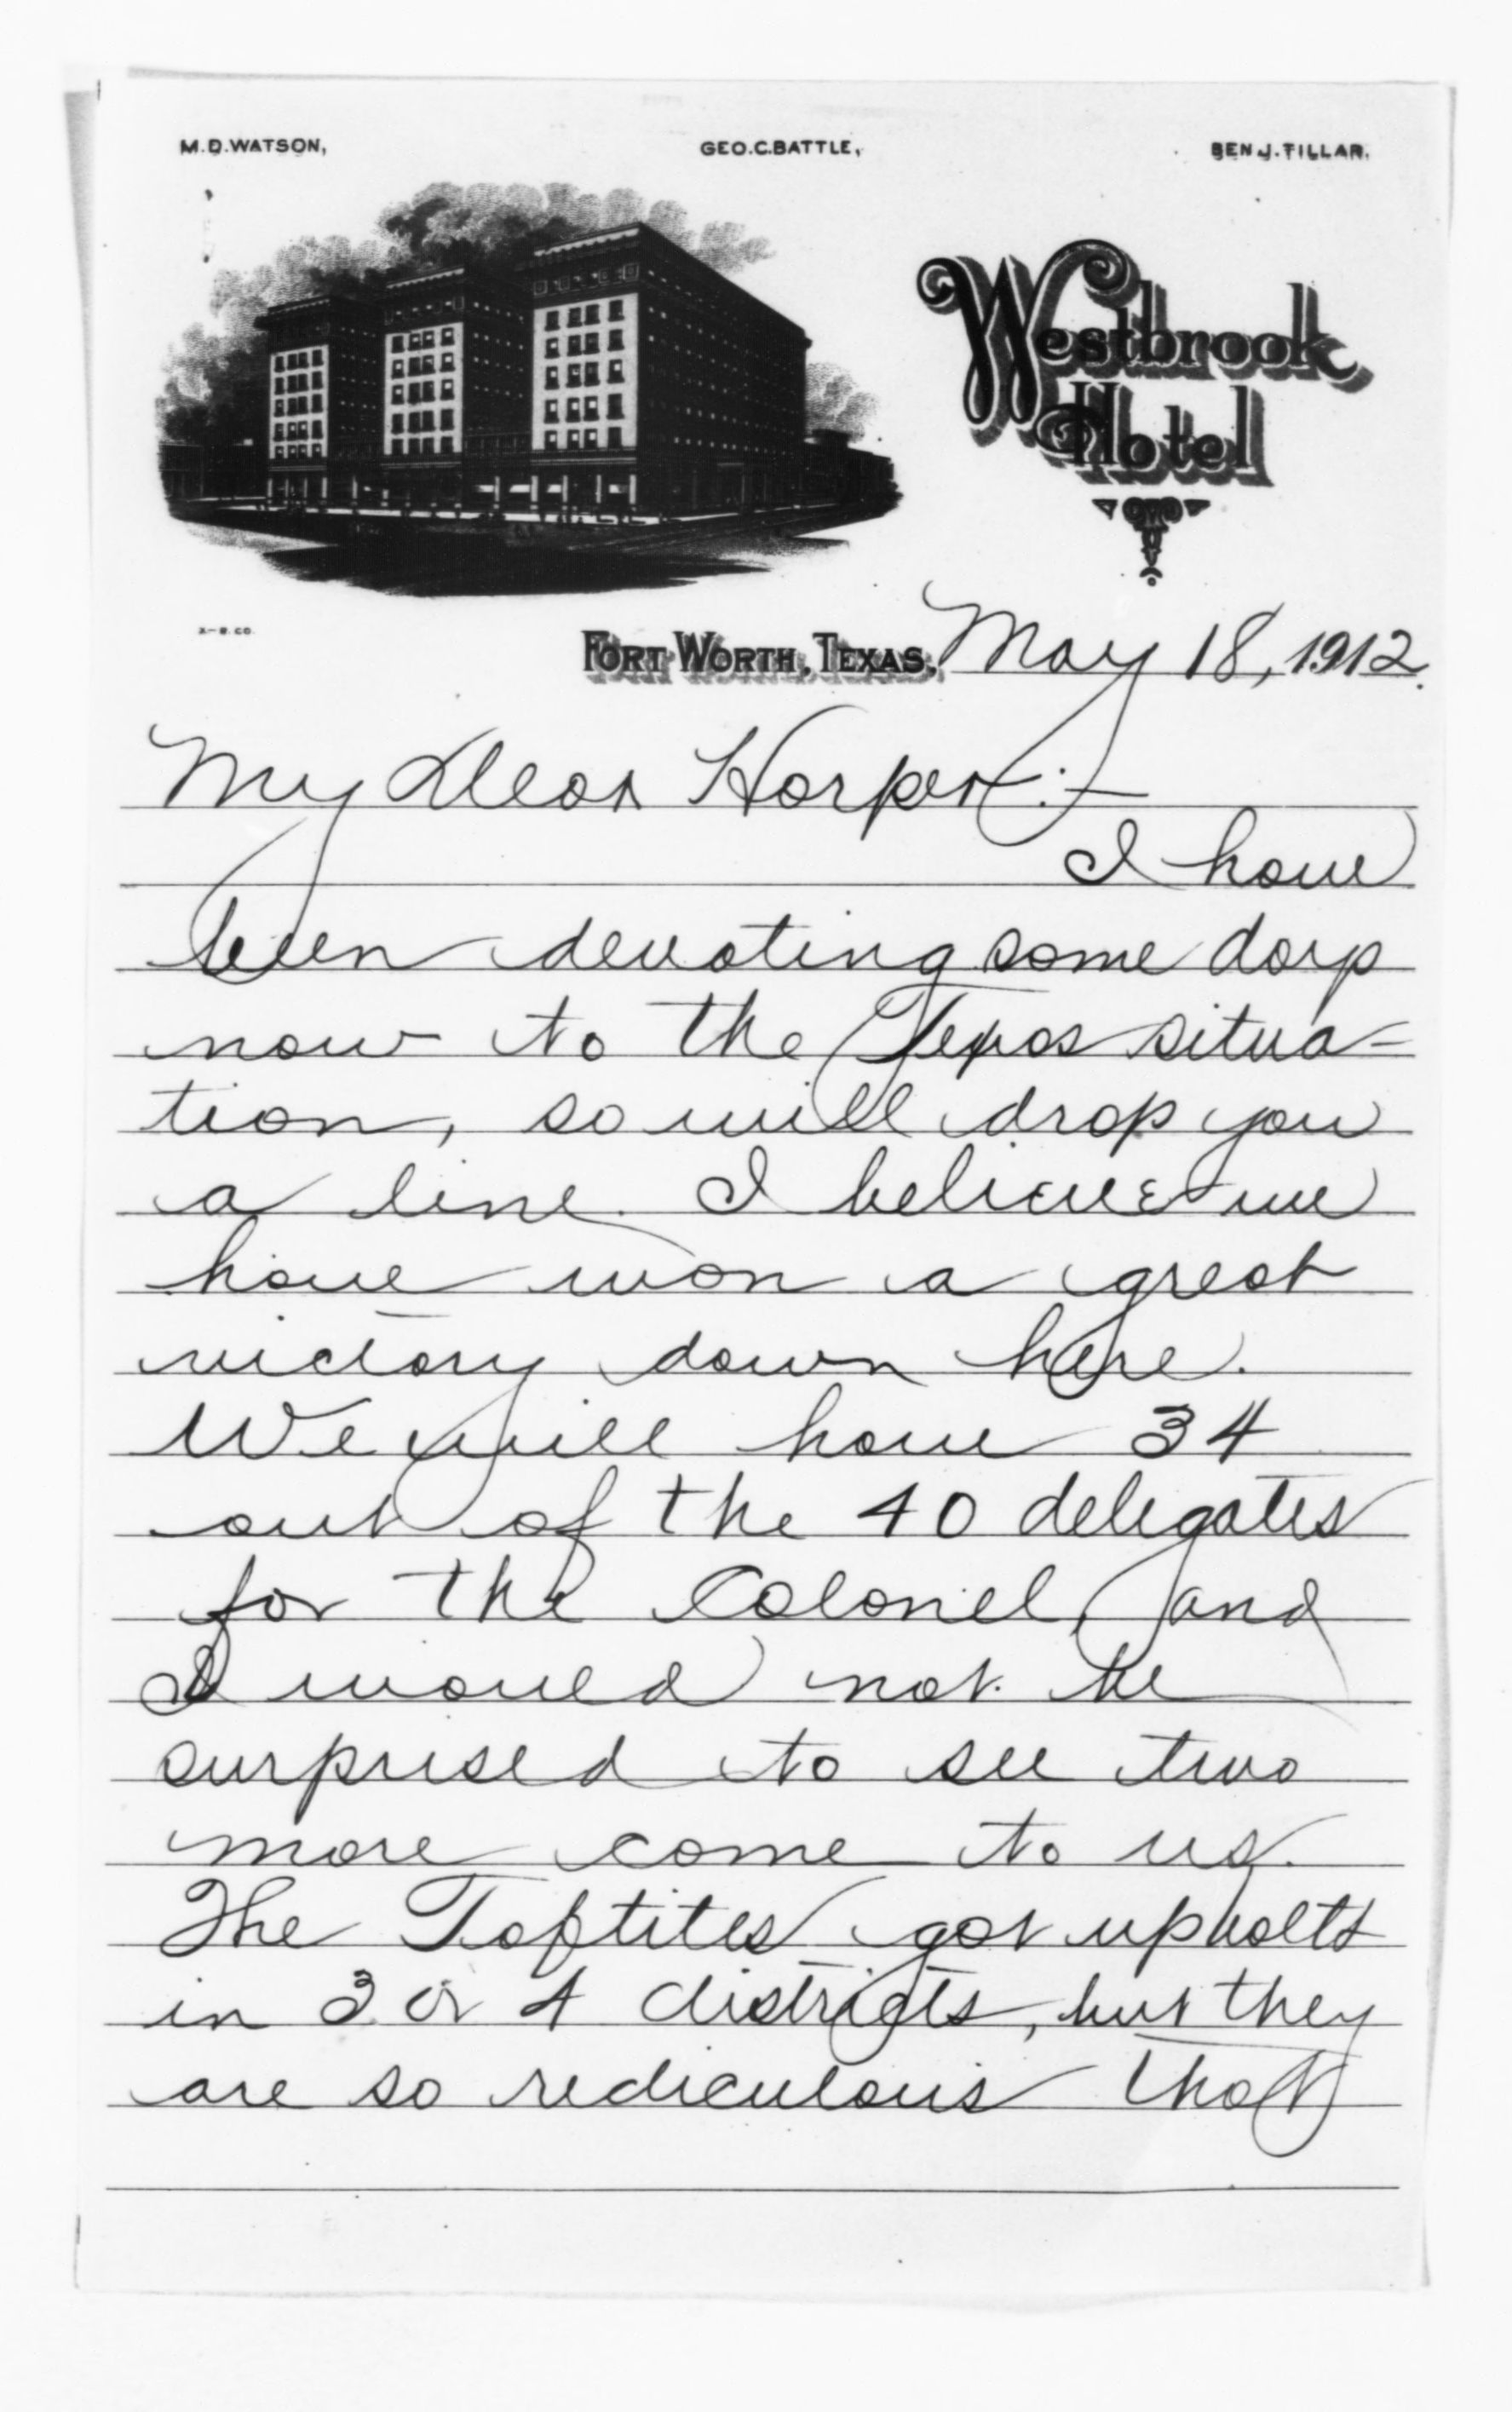 M.D.WATSON, GEO.C.BATTLE, BEN J.TILLAR.
Westbrook
Hotel
X-B.CO.
FORT WORTH, TEXAS, May 18, 1912.
My Dear Harper:-
I have
been devoting some days
now to the Texas situa-
tion, so will drop you
a line. I believe we
have won a great
victory down here.
We will have 34
out of the 40 delegates
for the Colonel, and
I would not be
surprised to see two
more come to us.
The Taftites got up bolts
in 3 or 4 districts, but they
are so rediculous that